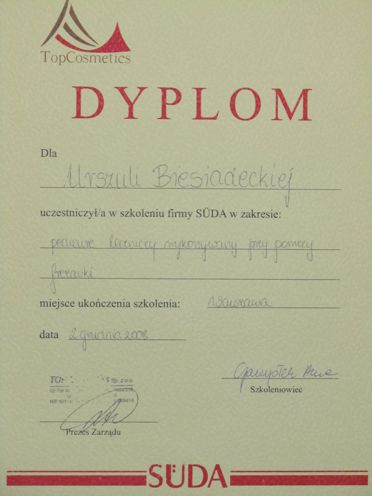 TopCosmetics
DYPLOM
Dla
Urszuli Biesiadeckiej
uczestniczył/a w szkoleniu firmy SÜDA w zakresie:
pedicure leczniczy wykonywany przy pomocy
frezarki
miejsce ukończenia szkolenia: Warszawa
data 2 grudnia 2008
Szkoleniowiec
Prezes Zarządu
SÜDA